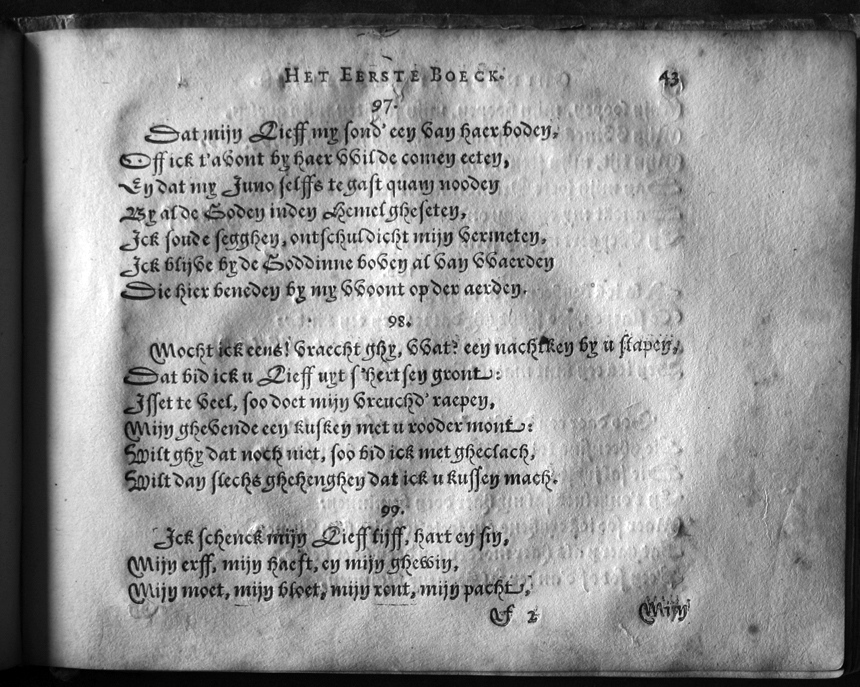 HET EERSTE BOECK. 43
97.
Dat mijn Lieff my sond' een van haer boden,
Off ick t'avont by haer wilde comen eeten,
En dat my Juno selffs te gast quam nooden
By al de Goden inden Hemel gheseten,
Ick soude segghen, ontschuldicht mijn vermeten,
Ick blijve by de Goddinne boven al van waerden
Die hier beneden by my woont op der aerden.
98.
Mocht ick eens! vraecht ghy, wat? een nachtken by u slapen,
Dat bid ick u Lieff uyt s'hertsen gront:
Isset te veel, soo doet mijn vreuchd' raepen,
Mijn ghevende een kusken met u rooder mont:
Wilt ghy dat noch niet, soo bid ick met gheclach,
Wilt dan slechs ghehenghen dat ick u kussen mach.
99.
Ick schenck mijn Lieff lijff, hart en sin,
Mijn erff, mijn haeft, en mijn ghewin,
Mijn moet, mijn bloet, mijn rent, mijn pacht,
F 2 Mijn